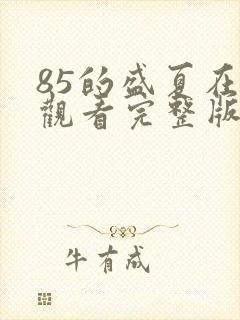 85的盛夏在
觀看完整版
牛有成